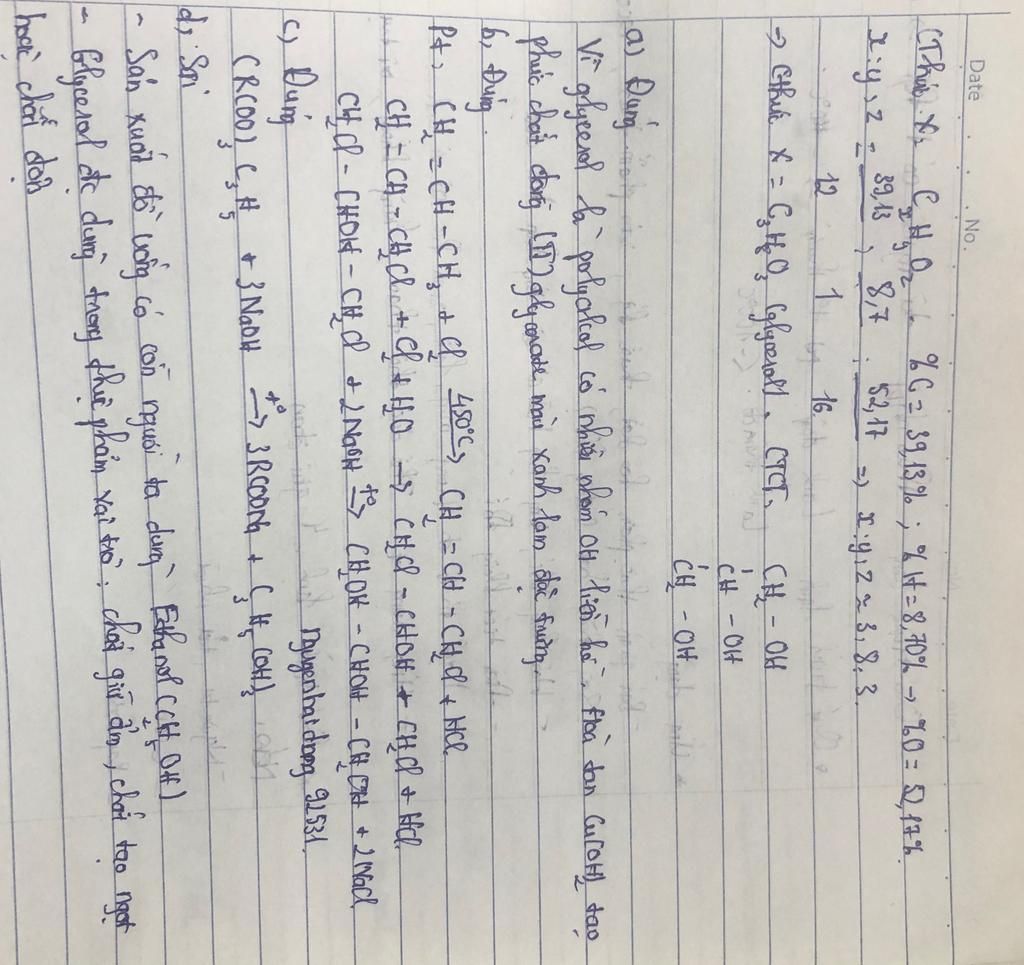 Date . . . . No.
CThức X: CxHyOz %C = 39,13% ; %H = 8,70% → %O = 52,17%
x : y : z = 39,13/12 : 8,7/1 : 52,17/16 => x : y : z ≈ 3 : 8 : 3
→ CThức X = C3H8O3 (glycerol). CTCT: CH2 - OH
CH - OH
CH2 - OH
a) Đúng
Vì glycerol là polyalcol có nhiều nhóm OH liền kề. Hoà tan Cu(OH)2 tạo
phức chất đồng (II) glycerate màu xanh lam đặc trưng.
b, Đúng.
Pt: CH2 = CH - CH3 + Cl2 450°C→ CH2 = CH - CH2Cl + HCl
CH2 = CH - CH2Cl + Cl2 + H2O → CH2Cl - CHOH + CH2Cl + HCl
CH2Cl - CHOH - CH2Cl + 2NaOH t°→ CH2OH - CHOH - CH2OH + 2NaCl
c, Đúng nguyenhaidang92531
(RCOO)3C3H5 + 3NaOH t°→ 3RCOONa + C3H5(OH)3
d, Sai
- Sản xuất đồ uống có cồn người ta dùng Ethanol (C2H5OH)
- Glycerol đc dùng trong thực phẩm vai trò: chất giữ ẩm, chất tạo ngọt
hoặc chất độn